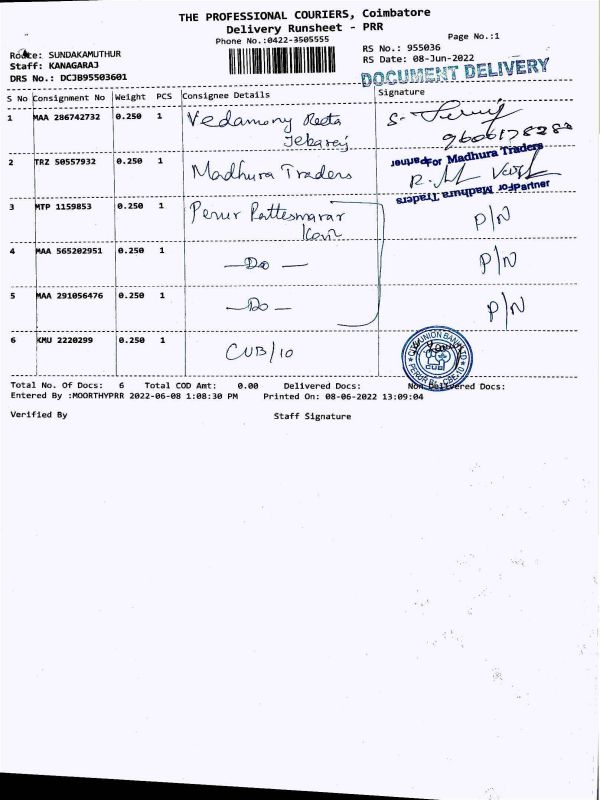 THE PROFESSIONAL COURIERS, Coimbatore
Delivery Runsheet - PRR
Phone No.:0422-3505555
Page No.:1
Route: SUNDAKAMUTHUR
Staff: KANAGARAJ
DRS No.: DCJB95503601
RS No.: 955036
RS Date: 08-Jun-2022
DOCUMENT DELIVERY
S No Consignment No Weight PCS Consignee Details Signature
1 MAA 286742732 0.250 1 Vedamony Reeta
Jebaraj
2 TRZ 50557932 0.250 1 Madhura Traders
For Madhura Traders
Partner
For Madhura Traders
Partner
3 MTP 1159853 0.250 1 Perur Patteswarar
Kovil P/N
4 MAA 565202951 0.250 1 —Do— P/N
5 MAA 291056476 0.250 1 —Do— P/N
6 KMU 2220299 0.250 1 CUB/10
CITY UNION BANK LTD
CUB
Total No. Of Docs: 6 Total COD Amt: 0.00 Delivered Docs: Non Delivered Docs:
Entered By :MOORTHYPRR 2022-06-08 1:08:30 PM Printed On: 08-06-2022 13:09:04
Verified By Staff Signature